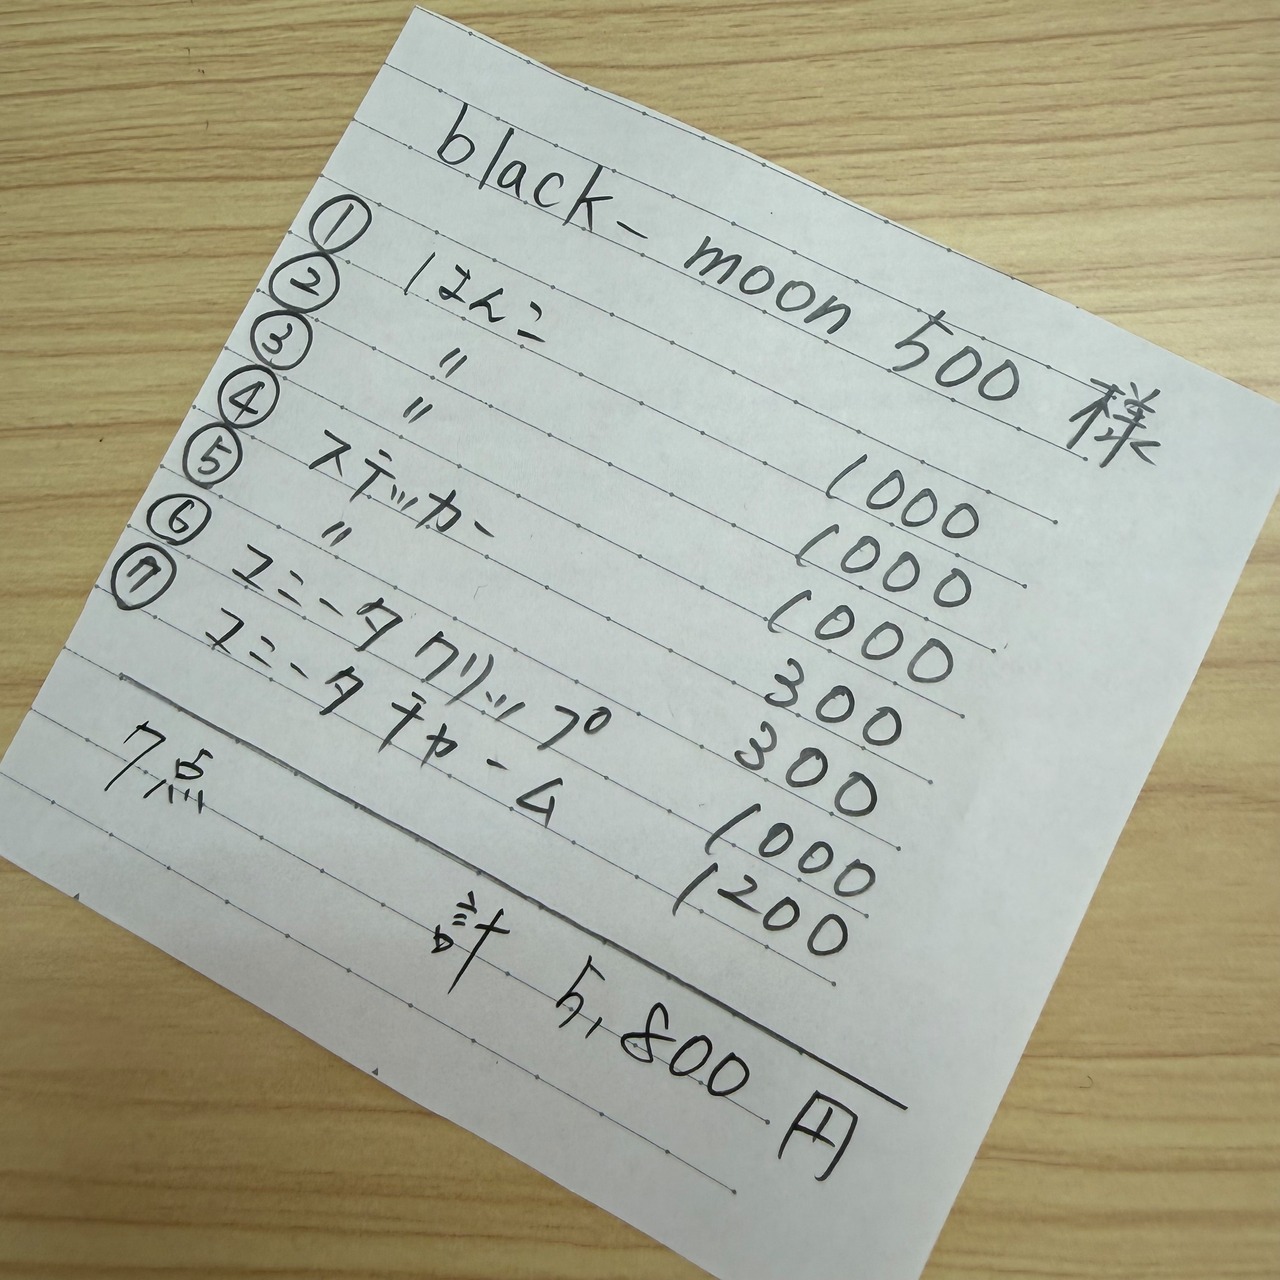 black_moon 500 様
① はんこ 1000
② 〃 1000
③ 〃 1000
④ ステッカー 300
⑤ 〃 300
⑥ ユニータクリップ 1000
⑦ ユニータチャーム 1200
7点
計 5,800円